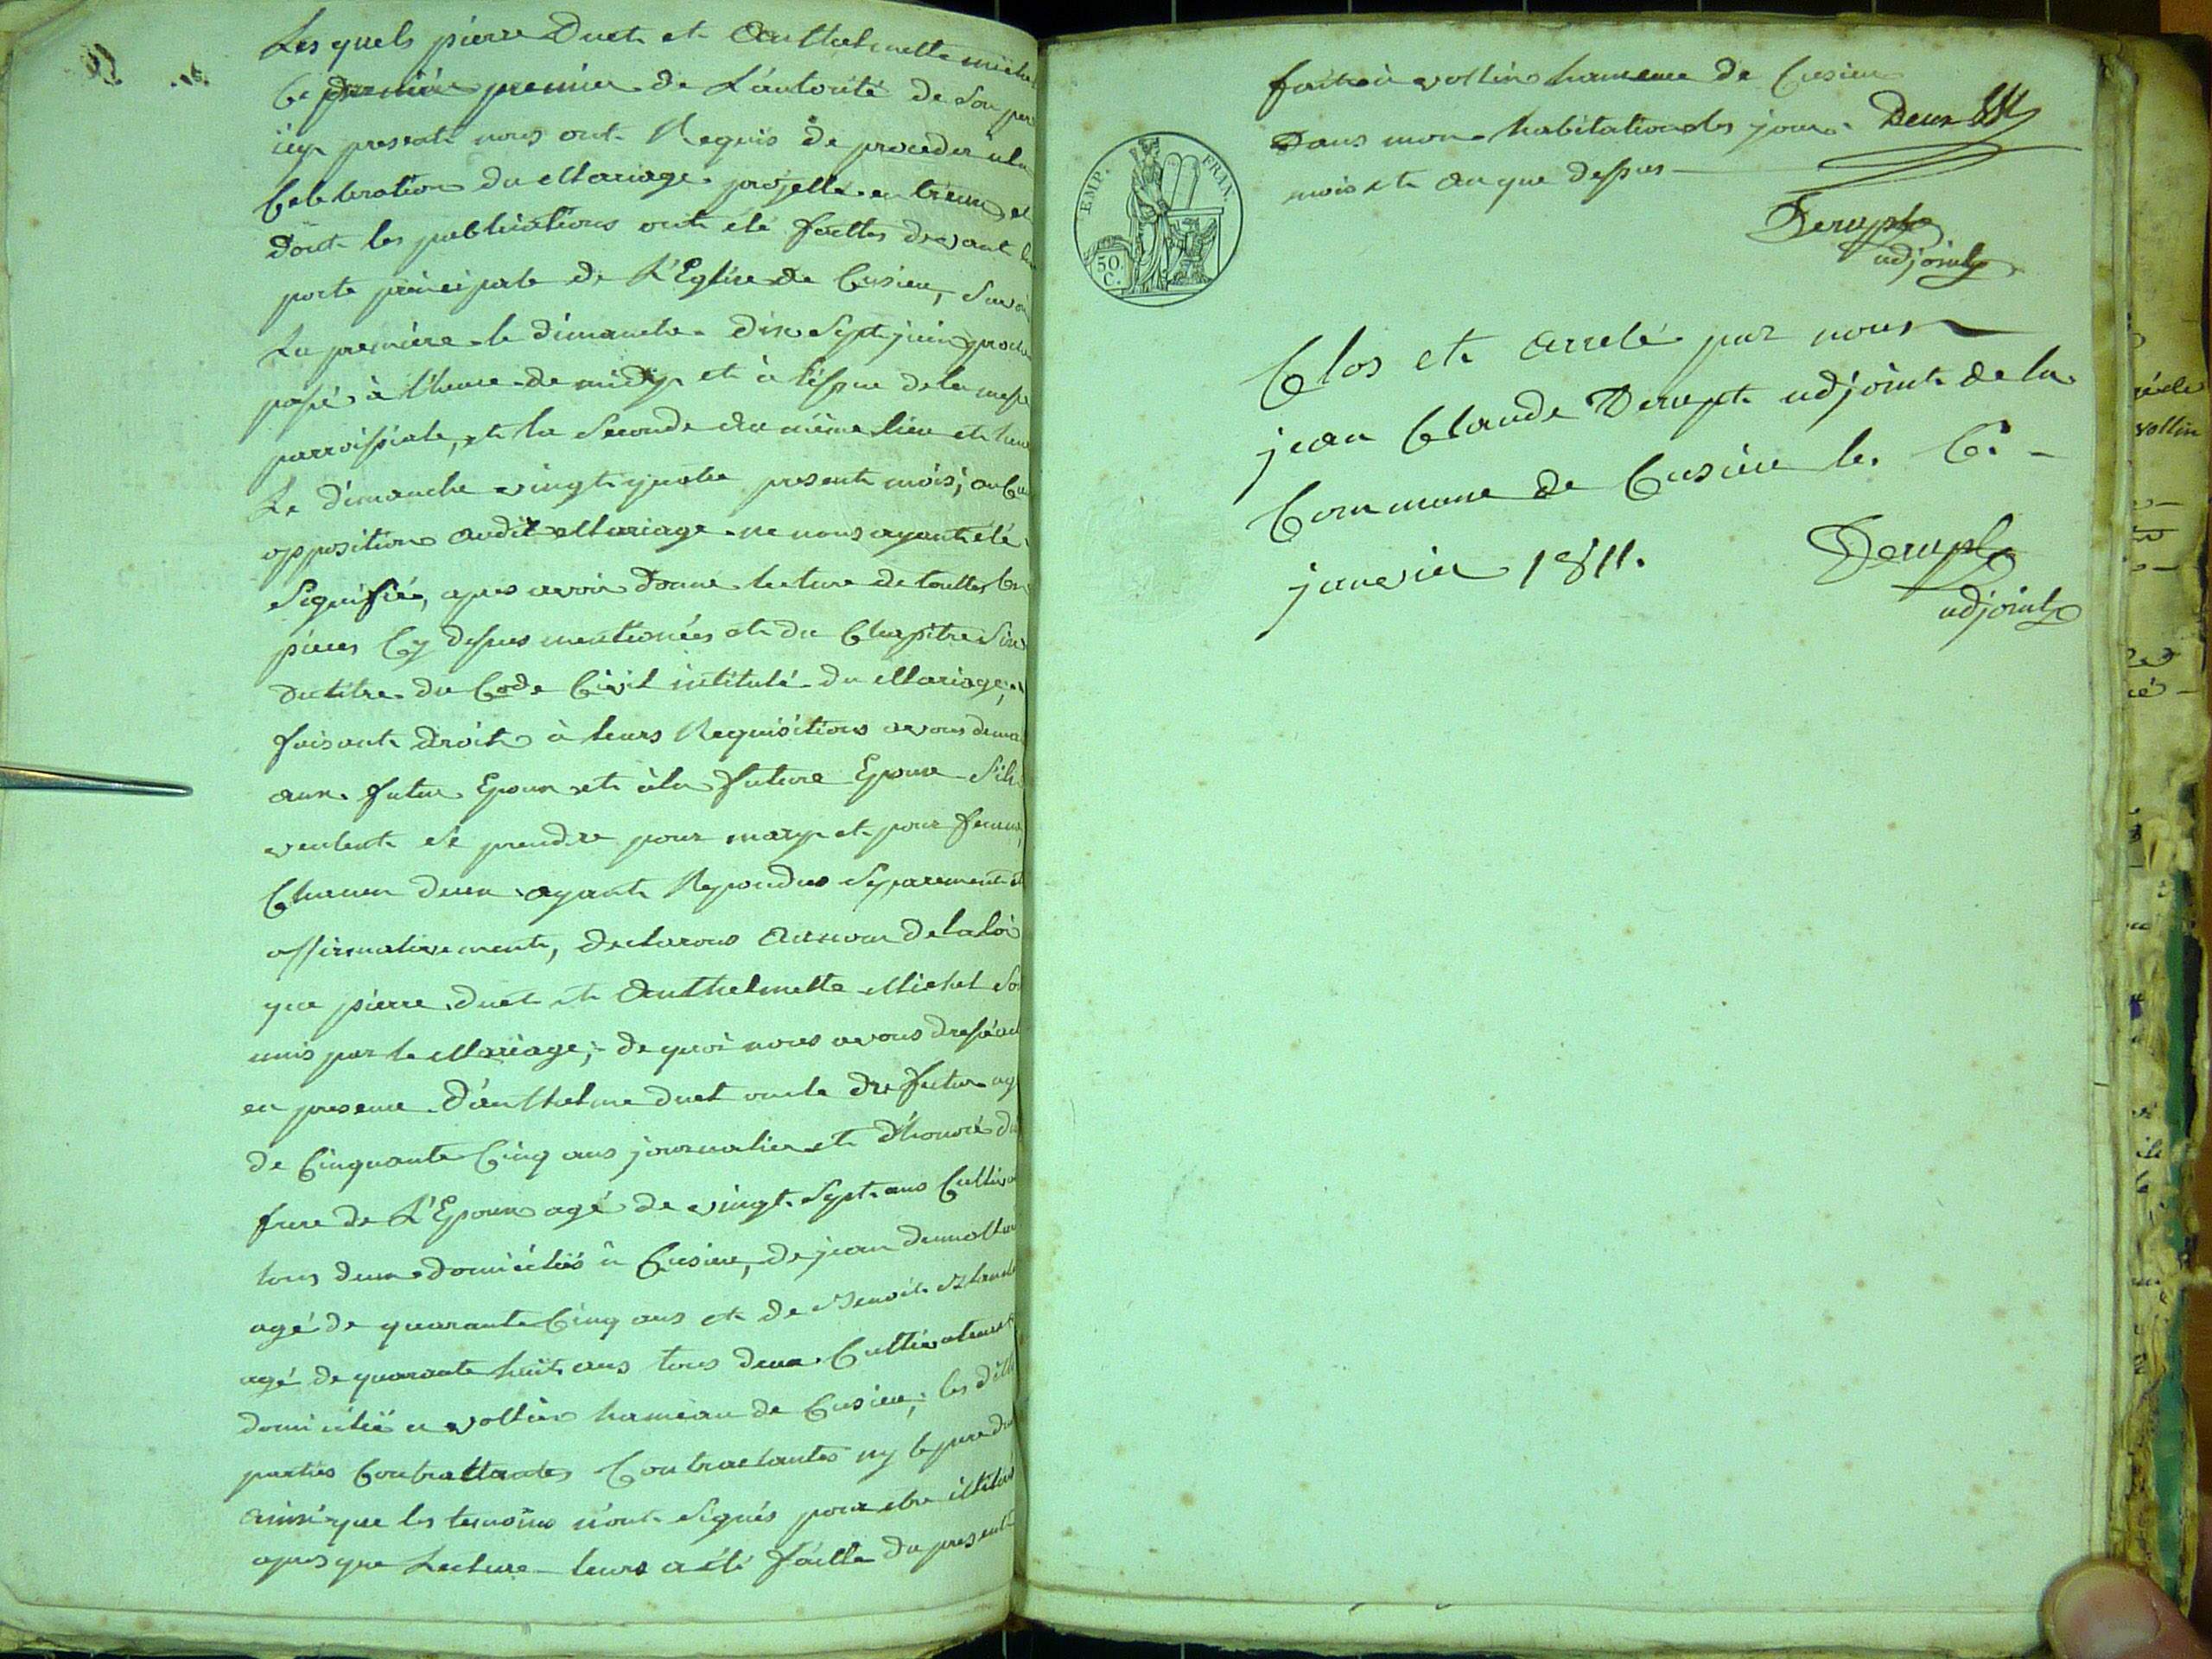 Les quels pierre Duet et Anthelmette michel
Ce premier premier de L'autorité de son pere
icy present nous ont Requis de proceder a la
Celebration du Mariage projetté entreux et
dont les publications ont eté faittes devant la
porte principale de L'Eglise de Cusieu, Savoir
La premiere le dimanche dix Sept juin proche
passé à l'heure de midy et à l'issue de la messe
parroissiale, et la Seconde au même lieu et heure
Le dimanche vingt quatre present mois; aucune
opposition audit Mariage ne nous ayant été
Signifié, apres avoir donné lecture de touttes les
pieces Cy dessus mentionées et du Chapitre Six
du titre du Code Civil intitulé du Mariage,
faisant droit à leurs Requisitions avons demandé
aux futur Epoux et à la future Epouse S'ils
veulent se prendre pour mary et pour femme,
Chacun deux ayant Repondu Separement et
affirmativement, declarons Au nom de la loi
que pierre duet et Anthelmette Michel Sont
unis par le Mariage; de quoi nous avons dressé acte
en presence d'anthelme duet oncle du futur agé
de Cinquante Cinq ans journalier et d'honoré
frere de L'Epoux agé de vingt Sept ans Cultivateur
tous deux domiciliés à Cusieu, de jean
agé de quarante Cinq ans et de Benoit
agé de quarante huit ans tous deux Cultivateurs
domicilié a vollin hameau de Cusieu; les dittes
parties Contrattantes Contractantes ny le pere
ainsi que les temoins n'ont Signés pour etre illitérés
apres que Lecture leurs a été faitte du present
EMP. FRAN.
50. C.
fait à vollin hameau de Cusieu
Dans mon habitation les jour Deux
mois et an que dessus
Derupt
adjoint
Clos et Arreté par nous
jean Claude Derupt adjoint de la
Commune de Cusieu le 1er
janvier 1811.
Derupt
adjoint
vollin